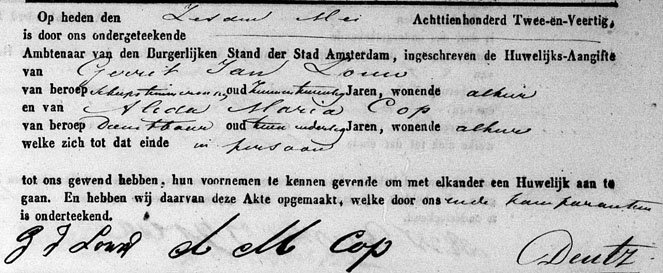 Op heden den Zesden Mei Achttienhonderd Twee-en-Veertig,
is door ons ondergeteekende
Ambtenaar van den Burgerlijken Stand der Stad Amsterdam, ingeschreven de Huwelijks-Aangifte
van Gerrit Jan Louw
van beroep Scheepstimmerman, oud Jaren, wonende alhier
en van Alida Maria Cop
van beroep Dienstbaar oud Jaren, wonende alhier
welke zich tot dat einde in persoon
tot ons gewend hebben, hun voornemen te kennen gevende om met elkander een Huwelijk aan te
gaan. En hebben wij daarvan deze Akte opgemaakt, welke door ons ende komparanten
is onderteekend.
G J Louw A M Cop Deutz